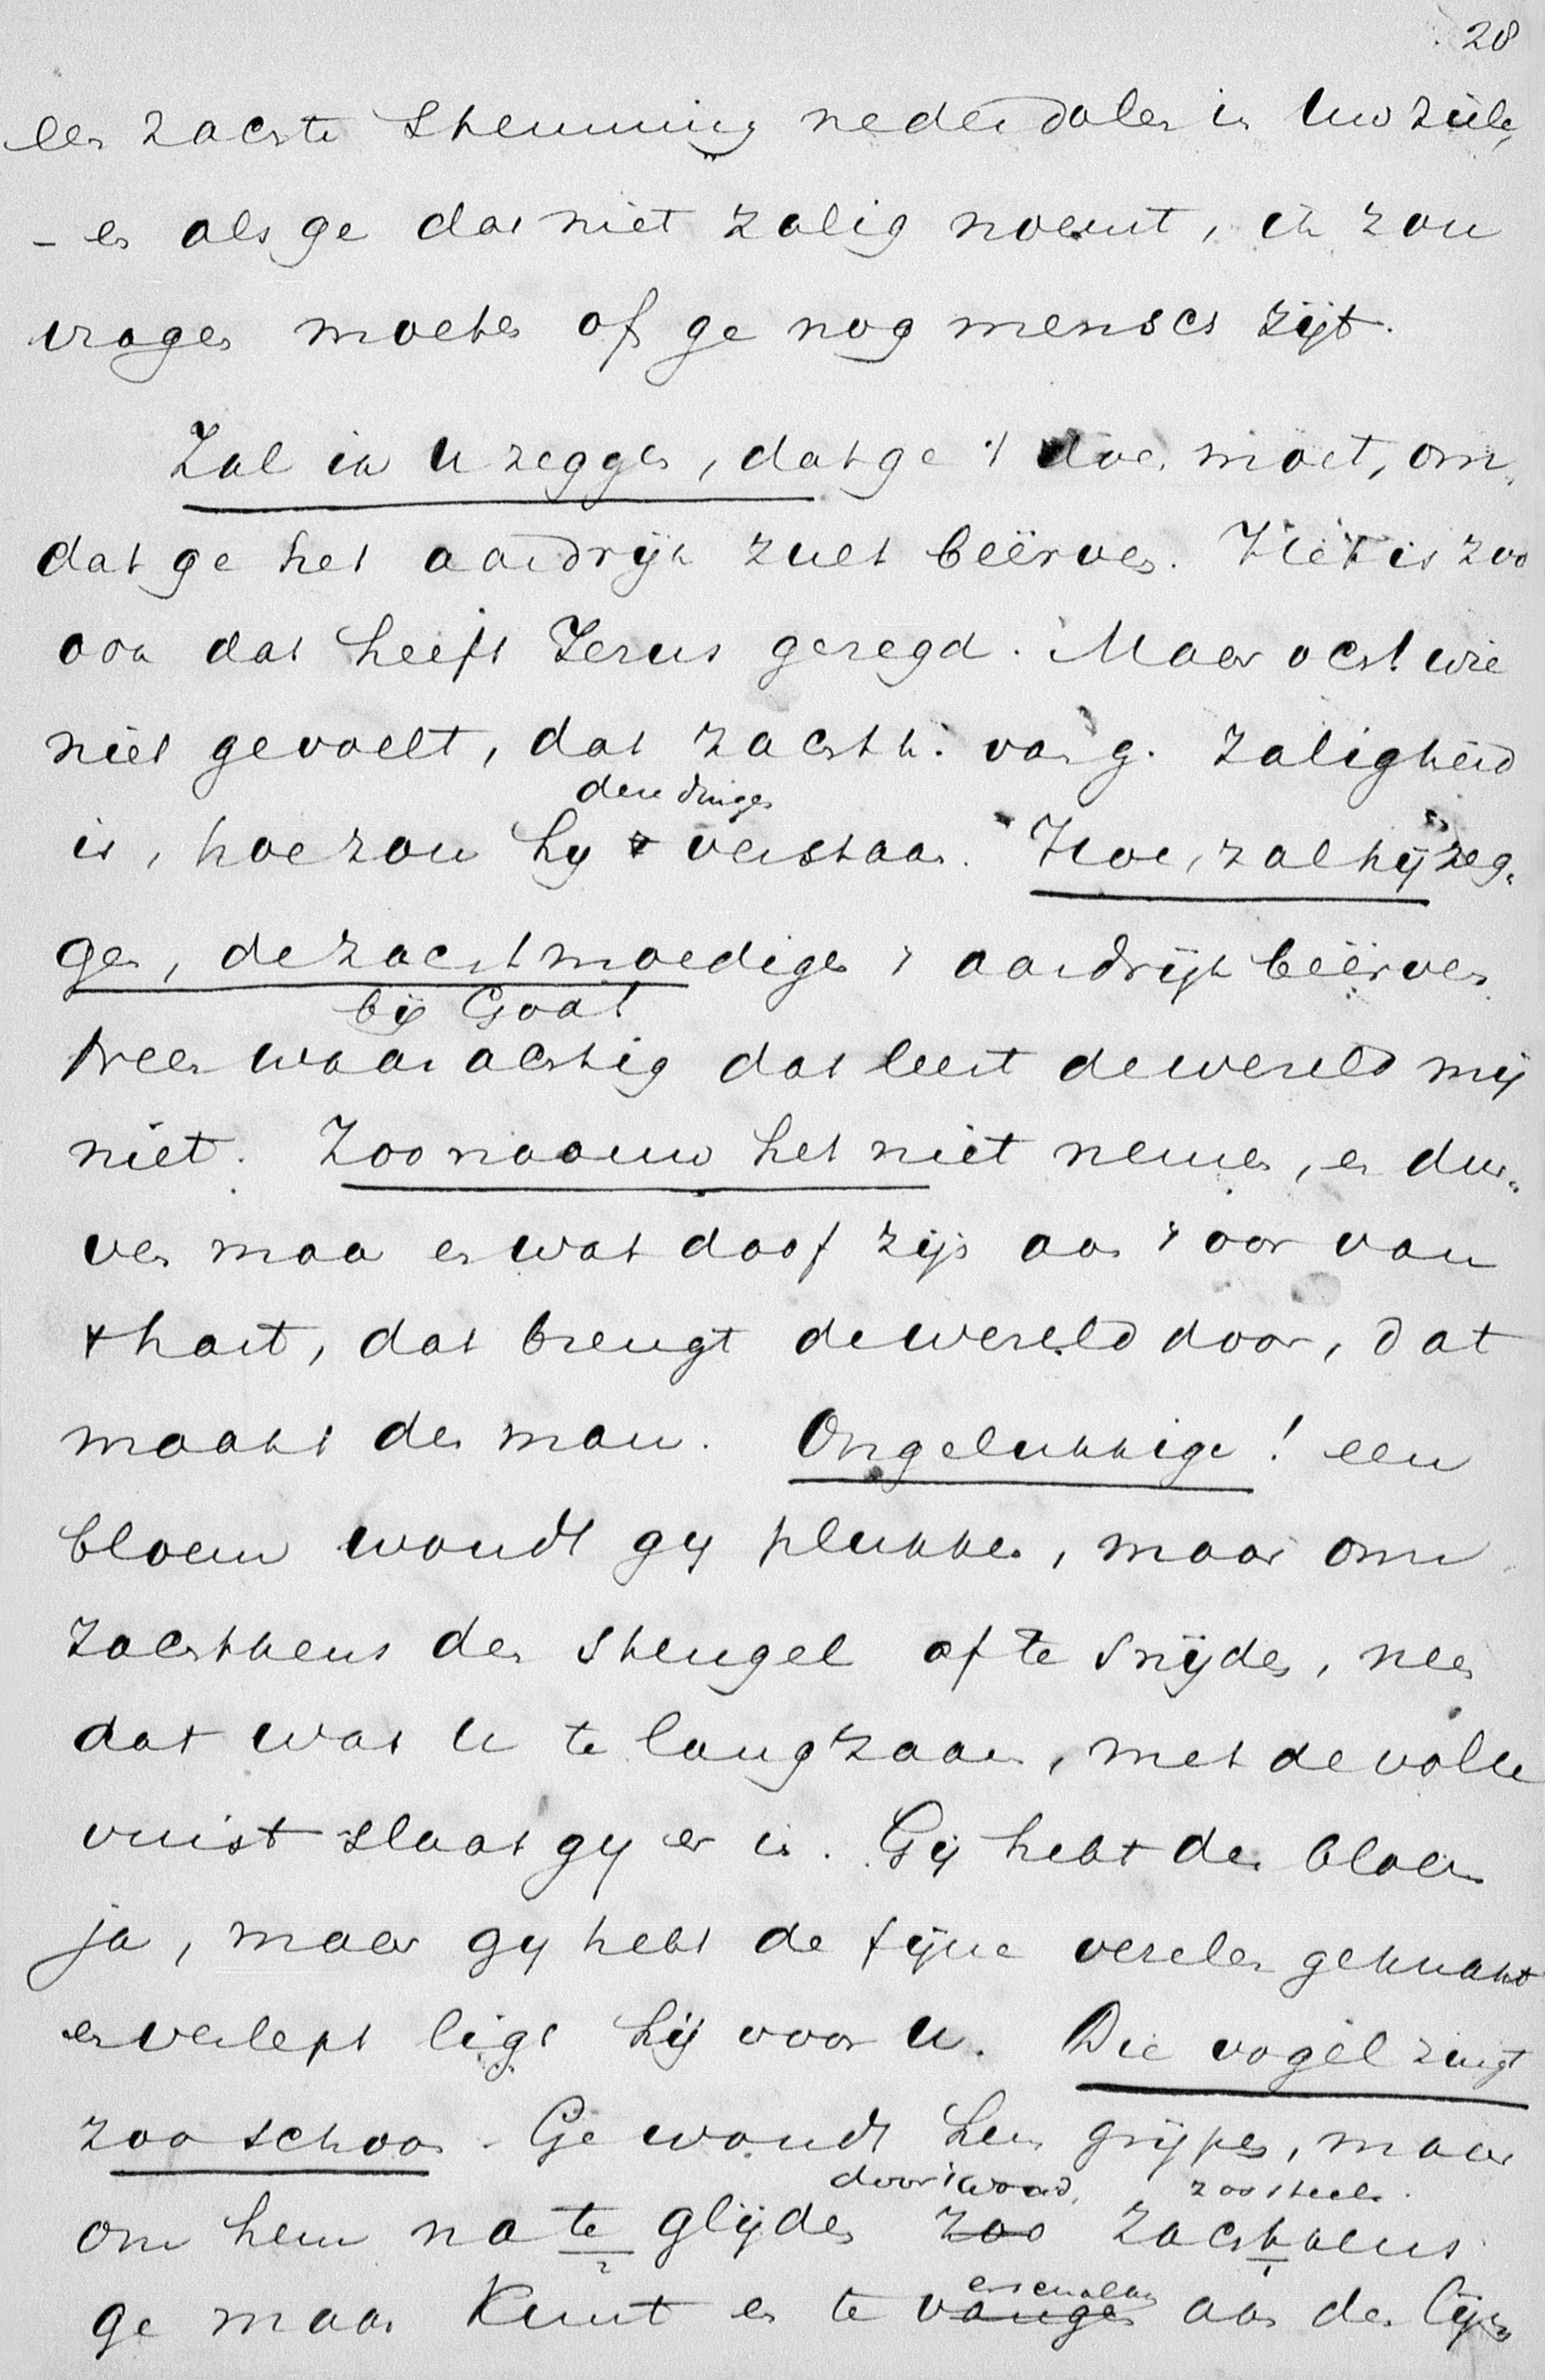 28
een zachte stemming nederdalen in Uw ziele,
- en als ge dat niet zalig noemt, ik zou
vragen moeten of ge nog mensch zijt.
Zal ik U zeggen, dat ge 't doen moet, om-
dat ge het aardrijk zult beërven. Het is zoo
ook dat heeft Jezus gezegd. Maar och! wie
niet gevoelt, dat zachth. van g. zaligheid
deze dingen
is, hoe zou hy verstaan. Hoe, zal hij zeg-
gen, de zachtmoedigen 't aardrijk beërven
bij God
neen waarachtig dat leert de wereld mij
niet. Zoo naauw het niet nemen, en dur-
ven maar en wat doof zijn aan 't oor van
't hart, dat brengt de wereld door, dat
maakt den man. Ongelukkige! een
bloem woudt gy plukken, maar om
zachtkens den stengel af te snijden, neen
dat was U te langzaam, met de volle
vuist slaat gy er in. Gij hebt den bloem
ja, maar gy hebt de fijne vezelen geknakt
en verlept ligt hij voor U. Die vogel zingt
zoo schoon. Ge woudt hem grijpen, maar
door 't woud, zoo steels
om hem na te glijden zoo zachtkens
ge maar kunt en te vangen aan de lijn